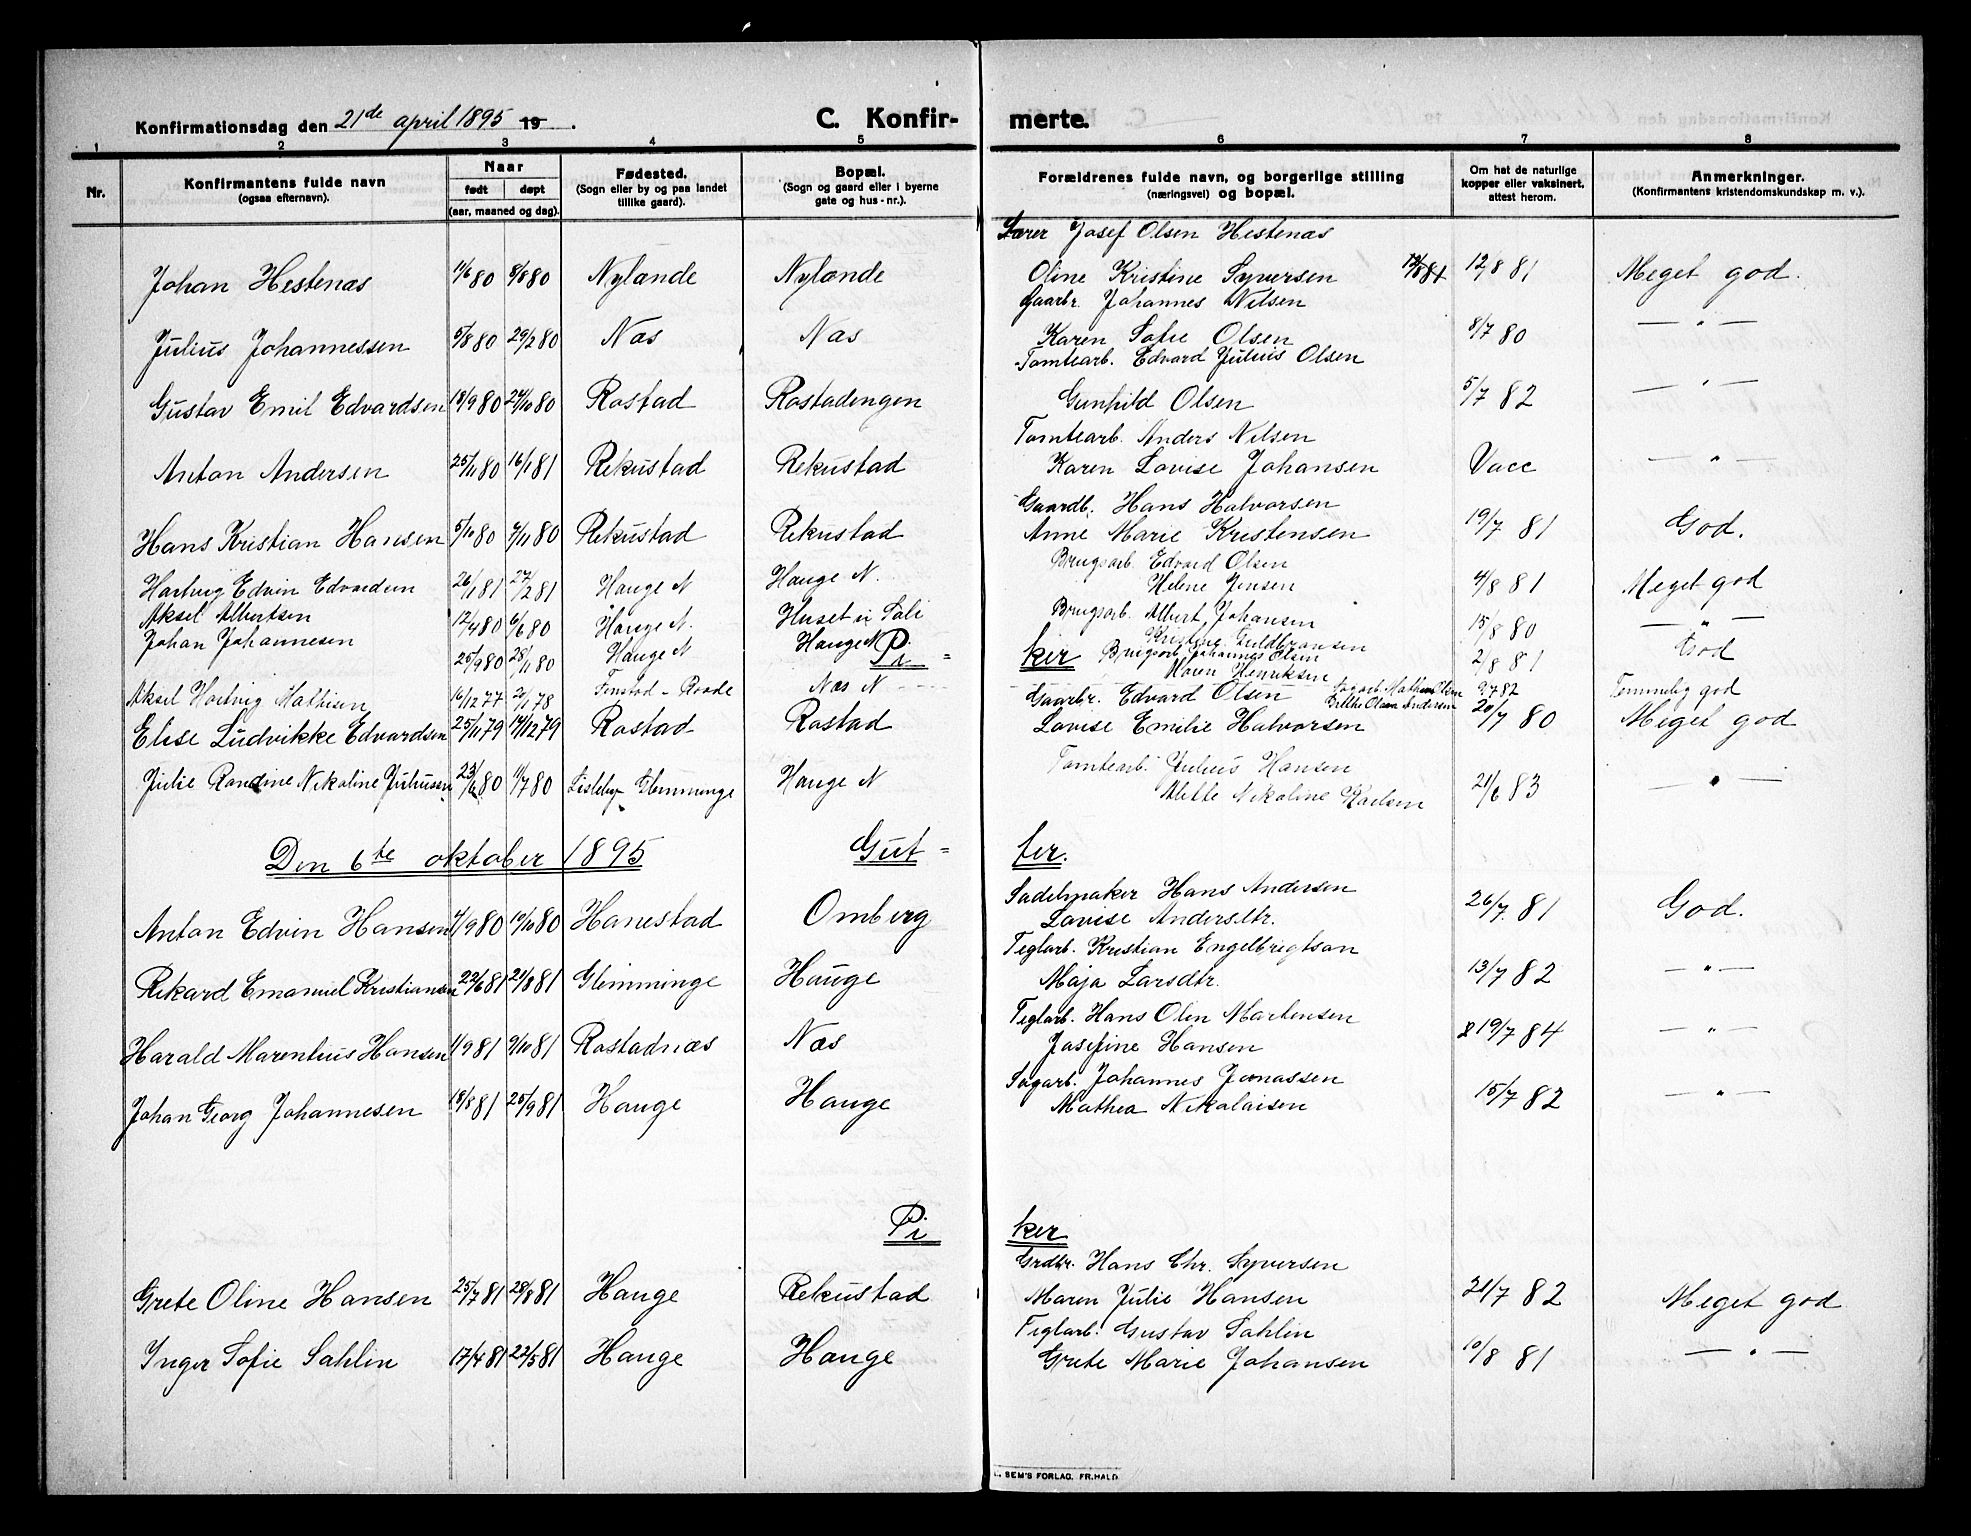 Konfirmationsdag den 21de april 1895 19 . C. Konfir-merte.
1 2 3 4 5 6 7 8
Nr. Konfirmantens fulde navn (ogsaa efternavn). Naar født døpt (aar, maaned og dag). Fødested. (Sogn eller by og paa landet tillike gaard). Bopæl. (Sogn og gaard eller i byerne gate og hus-nr.). Forældrenes fulde navn, og borgerlige stilling (næringsvei) og bopæl. Om hat de naturlige kopper eller vaksinert, attest herom. Anmerkninger. (Konfirmantens kristendomskundskap m. v.).
Lærer Josef Olsen Hestenæs
Johan Hestenæs 11/6 80 8/8 80 Nylænde Nylænde Oline Kristine Syversen 12/8 81 12/8 81 Meget god.
Gaarbr. Johannes Nilsen
Julius Johannessen 5/8 80 29/2 80 Næs Næs Karen Sofie Olsen 8/7 80 — " —
Tomtearb. Edvard Julius Olsen
Gustav Emil Edvardsen 18/9 80 24/10 80 Rostad Rostadengen Gunhild Olsen 5/7 82 — " —
Tomtearb. Anders Nilsen
Anton Andersen 25/11 80 16/1 81 Rekustad Rekustad Karen Lovise Johansen Vacc — " —
Gaardb. Hans Halvorsen
Hans Kristian Hansen 5/10 80 7/11 80 Rekustad Rekustad Anne Marie Kristensen 19/7 81 God.
Brugsarb. Edvard Olsen
Hartvig Edvin Edvardsen 26/1 81 27/2 81 Hauge N Hauge N. Helene Jensen 4/8 81 Meget god
Aksel Albertsen 12/4 80 6/6 80 Hauge N. Huset i Sali Brugsarb. Albert Johansen 15/8 80 — " —
Kristine Guldbransen
Johan Johannesen 25/9 80 28/11 80 Hauge N Hauge N Brugsarb. Johannes Olsen 2/8 81 God
Pi = ker
Maren Henriksen
Aksel Hartvig Mathisen 16/12 77 20/1 78 Finstad - Raade Næs N Sagarb. Mathias Olsen 9/7 82 Temmelig god
Gaarbr. Edvard Olsen Bethe Olava Andersen
Elise Ludvikke Edvardsen 25/11 79 14/12 79 Rostad Rostad Lovise Emilie Halvorsen 20/7 80 Meget god
Tomtearb. Julius Hansen
Julie Randine Nikoline Juliussen 23/6 80 11/7 80 Lisleby Glemminge Hauge N Alette Nikoline Karlsen 21/6 83 — " —
Den 6te oktober 1895 Gut = ter.
Sadelmaker Hans Andersen
Anton Edvin Hansen 4/9 80 10/10 80 Hanestad Omberg Lovise Andersdtr. 26/7. 81 God.
Teglarb. Kristian Engelbregtsan
Rikard Emanuel Kristiansen 22/6 81 21/8 81 Glemminge Hauge Maja Larsdtr. 13/7 82 — " —
Teglarb. Hans Olen Martensen
Harald Marenthius Hansen 1/9 81 9/10 81 Rostadnæs Næs Josefine Hansen 19/7 84 — " —
Sagarb. Johannes Jonassen
Johan Georg Johannesen 18/8 81 25/9 81 Hauge Hauge Mathea Nikolaisen 15/7 82 — " —
Pi ker
Grdbr. Hans Chr. Syversen
Grete Oline Hansen 25/7 81 28/8 81 Hauge Rekustad Maren Julie Hansen 21/7 82 Meget god
Teglarb. Gustav Sahlin
Inger Sofie Sahlin 17/4 81 22/5 81 Hauge Hauge Grete Marie Johansen 10/8 81 — " —
SEM'S FORLAG, FR.HALD